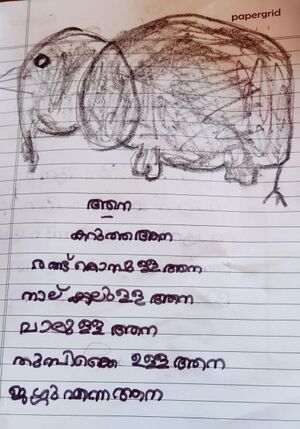 papergrid
ആന
കറുത്ത ആന
രണ്ട് കൊമ്പുള്ള ആന
നാല് കാലുള്ള ആന
വാലുള്ള ആന
തുമ്പിക്കൈ ഉള്ള ആന
ആന